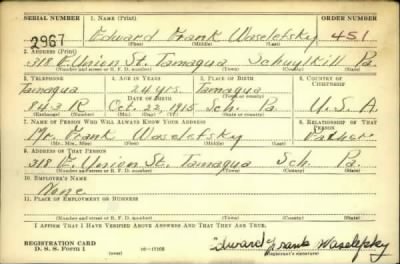 SERIAL NUMBER 1. NAME (Print) ORDER NUMBER
2967 Edward Frank Waselefsky 451
(First) (Middle) (Last)
2. ADDRESS (Print)
318 E. Union St. Tamaqua Schuylkill Pa.
(Number and street or R. F. D. number) (Town) (County) (State)
3. TELEPHONE 4. AGE IN YEARS 5. PLACE OF BIRTH 6. COUNTRY OF CITIZENSHIP
Tamaqua 24 yrs. Tamaqua
DATE OF BIRTH
843 R Oct. 22, 1915 Sch. Pa. U. S. A
(Exchange) (Number) (Mo.) (Day) (Yr.) (Town or county) (State or country)
7. NAME OF PERSON WHO WILL ALWAYS KNOW YOUR ADDRESS 8. RELATIONSHIP OF THAT PERSON
Mr. Frank Waselefsky Father
(Mr., Mrs., Miss) (First) (Middle) (Last)
9. ADDRESS OF THAT PERSON
318 E. Union St. Tamaqua Sch. Pa.
(Number and street or R. F. D. number) (Town) (County) (State)
10. EMPLOYER'S NAME
None
11. PLACE OF EMPLOYMENT OR BUSINESS
(Number and street or R. F. D. number) (Town) (County) (State)
I AFFIRM THAT I HAVE VERIFIED ABOVE ANSWERS AND THAT THEY ARE TRUE.
REGISTRATION CARD
D. S. S. Form 1 (over) Edward Frank Waselefsky
(Registrant's signature)